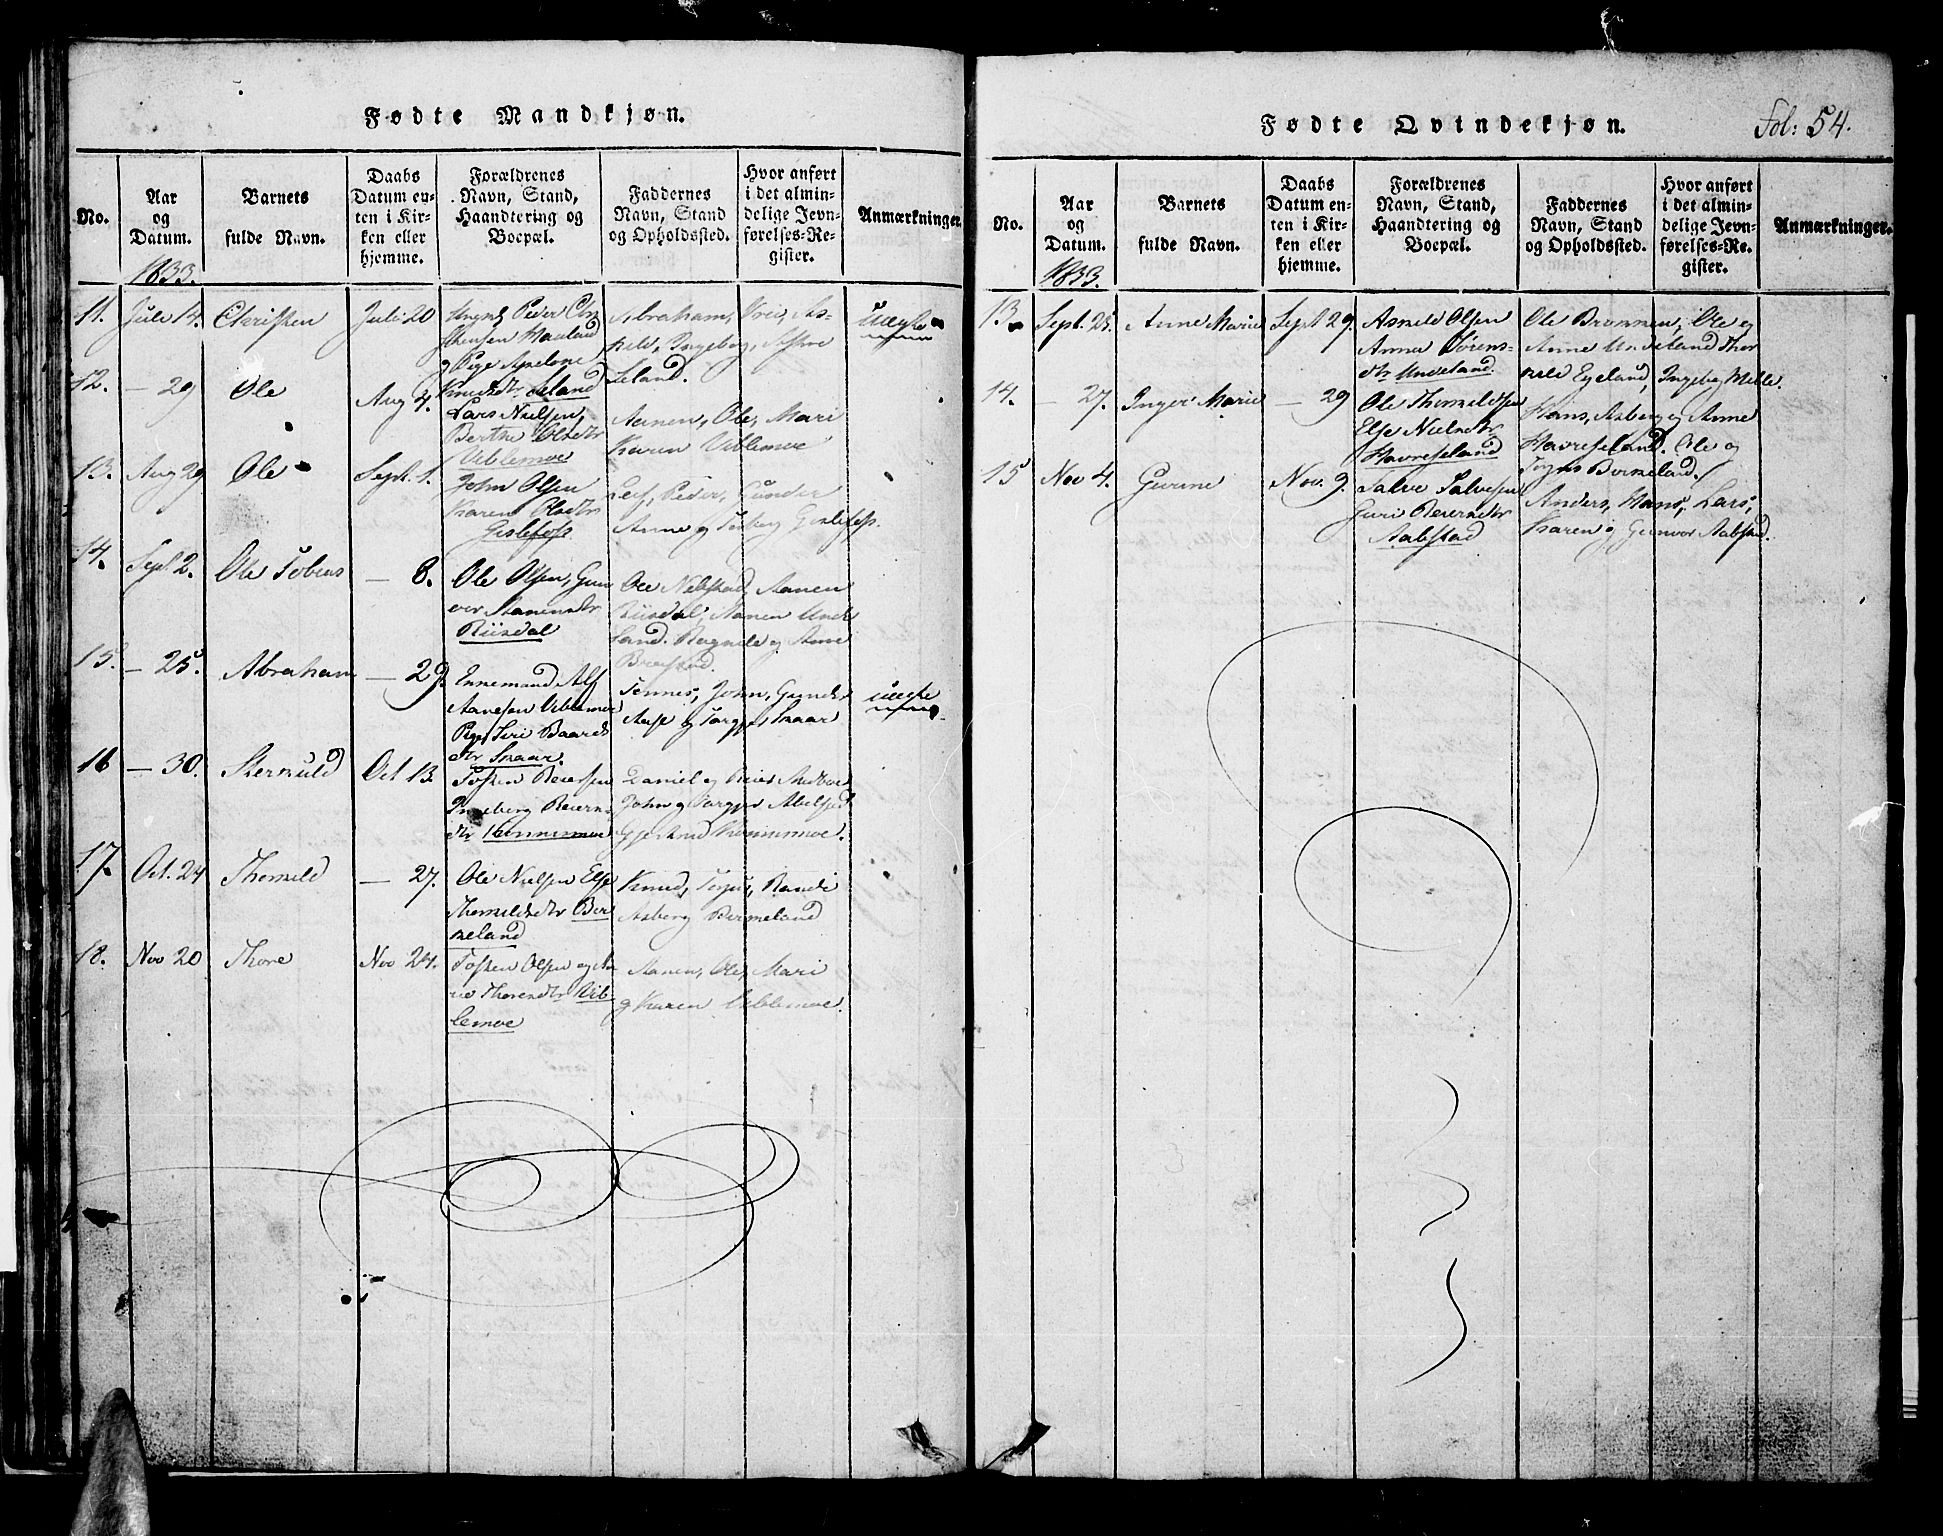 Fødte Mandkjøn.
No.
Aar
og
Datum.
Barnets
fulde Navn.
Daabs
Datum en-
ten i Kir-
ken eller
hjemme.
Forældrenes
Navn, Stand,
Haandtering og
Boepæl.
Faddernes
Navn, Stand
og Opholdssted.
Hvor anført
i det almin-
delige Jevn-
førelses-Re-
gister.
Anmærkninger.
1833.
11. Juli 14. Christen Juli 20
Abraham,
Ingeborg,
Leland.
Leland
12. — 29 Ole Aug 4.
Lars Nielsen,
Berthe Olsdtr
Ublemoe
Aanen, Ole, Mari
Karen Ublemoe
13. Aug 29 Ole Sept. 1.
John Olsen
Karen Olsdtr
Gislefoss
Leif, Peder, Gunder
Anne og Gislefoss.
14. Sept 2. Ole Tobias — 8.
Ole Olsen, Gun
vor Aanensdtr
Riisdal
Ole Nebstad, Aanen
Riisdal, Aanen Unde
land. Ragnile og Anne
Breistad.
15. — 25. Abraham — 29.
Aanesen Ublemoe
Pige Siri Baards
dtr Snaar.
Tønnes, John, Gunder
Aase og Snaar
uægte
16 — 30. Oct 13.
Tosten Reiersen
Ingeborg Reiers-
dtr Konnismoe
Daniel og
John og
Gjertrud Konnismoe.
17. Oct. 24 Thorkild — 27.
Ole Nielsen Else
Thorkildsdtr Bir
keland
Knud, Tarjus, Randi
Asberg Birkeland
18. Nov 20 Thore Nov 24.
Tosten Olsen og
Thoresdtr Ub-
lemoe
Aanen, Ole, Mari
og Karen Ublemoe.
Fødte Qvindekjøn.
Fol: 54.
No.
Aar
og
Datum.
Barnets
fulde Navn.
Daabs
Datum en-
ten i Kir-
ken eller
hjemme.
Forældrenes
Navn, Stand,
Haandtering og
Boepæl.
Faddernes
Navn, Stand
og Opholdssted.
Hvor anført
i det almin-
delige Jevn-
førelses-Re-
gister.
Anmærkninger.
1833.
13. Sept. 23. Anne Marie Sept 29.
Askild Olsen
Anna Sørens-
dtr Undeland.
Ole Brommen, Ole og
Anne Undeland Thor
kild Eyeland, Ingebog Melle.
14. — 27. Inger Marie — 29
Ole Thorkildsen
Else Nielsdtr
Havreseland
Hans, Asberg og Anne
Havreseland. Ole og
Birkeland.
15 Nov 4. Gurine Nov. 9.
Salve Salvesen
Guri Reiersdtr
Aabestad
Anders, Hans, Lars,
Karen og Gunvor Aabstad.